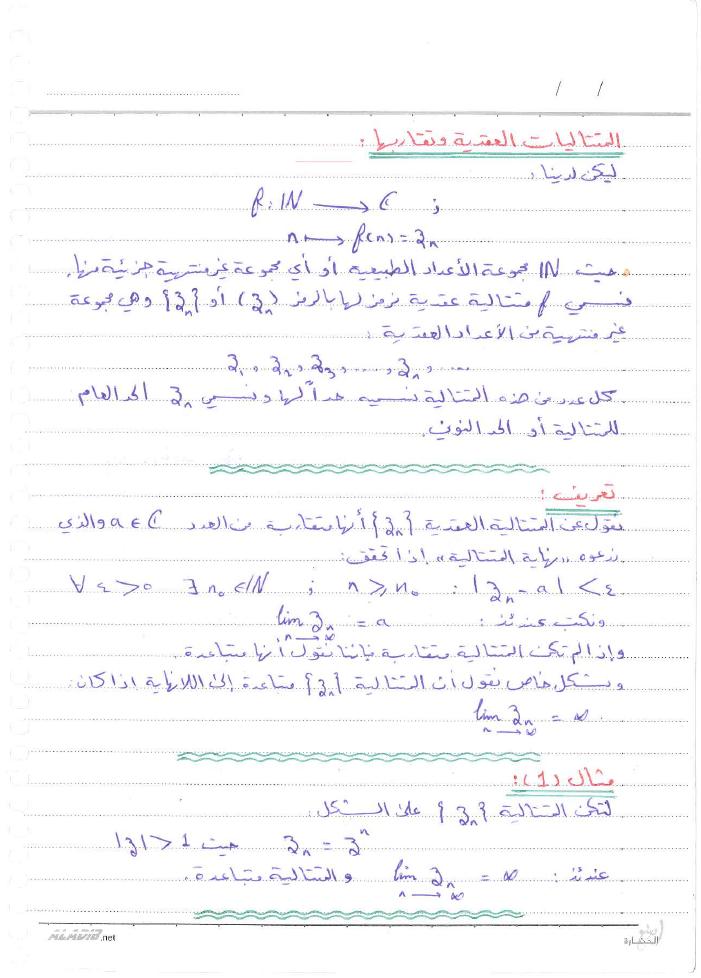 / /
المتتاليات العقدية وتقاربها :
ليكن لدينا :
f : IN → C ;
n ↦ f(n) = z_n
حيث IN مجموعة الأعداد الطبيعية أو أي مجموعة غير منتهية جزئية منها.
نسمي f متتالية عقدية نرمز لها بالرمز (z_n) أو {z_n} وهي مجموعة
غير منتهية من الأعداد العقدية :
z_1 , z_2 , z_3 , ..... , z_n , .....
كل عدد من هذه المتتالية نسميه حداً لها ونسمي z_n الحد العام
للمتتالية أو الحد النوني.
تعريف :
نقول عن المتتالية العقدية {z_n} أنها متقاربة من العدد a ∈ C والذي
ندعوه "نهاية المتتالية" إذا تحقق :
∀ ε > 0 ∃ n_0 ∈ IN ; n ≥ n_0 : |z_n - a| < ε
ونكتب عندئذ : lim_{n→∞} z_n = a
وإذا لم تكن المتتالية متقاربة فإننا نقول أنها متباعدة.
وبشكل خاص نقول أن المتتالية {z_n} متباعدة إلى اللانهاية اذا كان :
lim_{n→∞} z_n = ∞
مثال (1) :
لتكن المتتالية {z_n} على الشكل :
z_n = z^n حيث |z| > 1
عندئذ : lim_{n→∞} z_n = ∞ والمتتالية متباعدة.
ALADIB.net
الحضارة